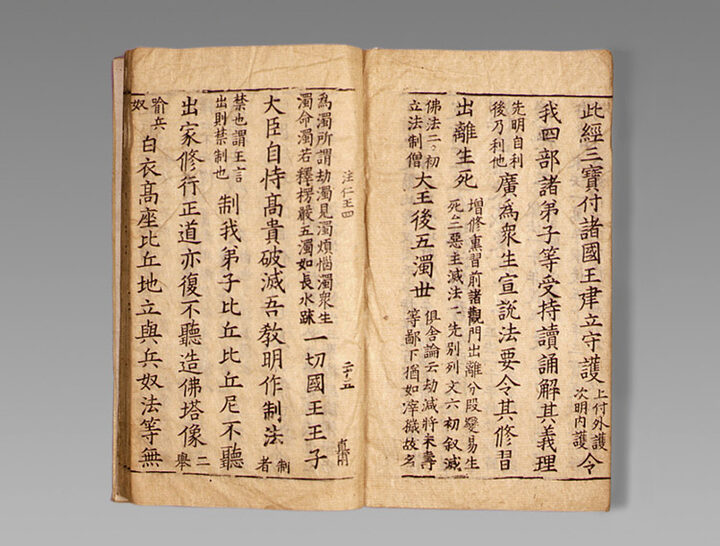 此經三寶付諸國王建立守護上付外護次明内護令
我四部諸弟子等受持讀誦解其義理
先明自利後乃利他廣爲衆生宣說法要令其修習
出離生死增修熏習前諸觀門出離分段變易生死三惡主滅法二先別列文六初叙滅
佛法二初立法制僧大王後五濁世俱舍論云劫減將末壽等鄙下猶如滓穢故名
爲濁所謂劫濁見濁煩惱濁衆生濁命濁若釋楞嚴五濁如長水䟽一切國王王子
注仁王四 二十五
大臣自恃高貴破滅吾教明作制法制者
禁也謂王言出則禁制也制我弟子比丘比丘尼不聽
出家修行正道亦復不聽造佛塔像二舉
喻兵奴白衣高座比丘地立與兵奴法等無